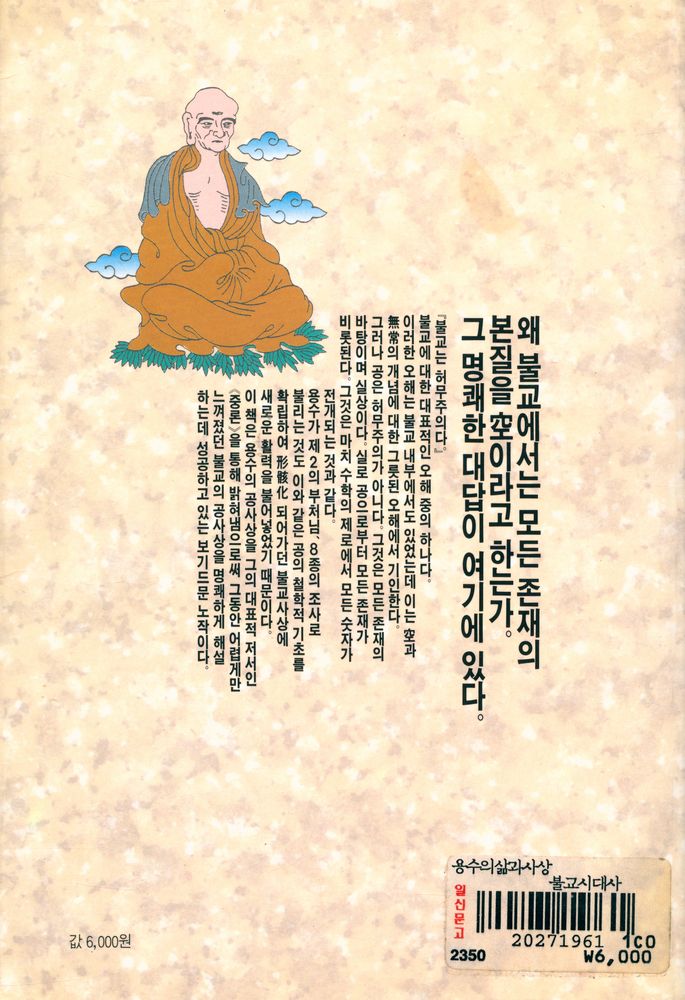 왜 불교에서는 모든 존재의
본질을 空이라고 하는가.
그 명쾌한 대답이 여기에 있다.
『불교는 허무주의다.』
불교에 대한 대표적인 오해 중의 하나다.
이러한 오해는 불교 내부에서도 있었는데 이는 空과
無常의 개념에 대한 그릇된 오해에서 기인한다.
그러나 공은 허무주의가 아니다. 그것은 모든 존재의
바탕이며 실상이다. 실로 공으로부터 모든 존재가
비롯된다. 그것은 마치 수학의 제로에서 모든 숫자가
전개되는 것과 같다.
용수가 제2의 부처님、8종의 조사로
불리는 것도 이와 같은 공의 철학적 기초를
확립하여 形骸化 되어가던 불교사상에
새로운 활력을 불어넣었기 때문이다.
이 책은 용수의 공사상을 그의 대표적 저서인
《중론》을 통해 밝혀냄으로써 그동안 어렵게만
느껴졌던 불교의 공사상을 명쾌하게 해설
하는데 성공하고 있는 보기드문 노작이다.
값 6,000원
용수의삶과사상
불교시대사
일신문고
20271961 1C0
2350
₩6,000